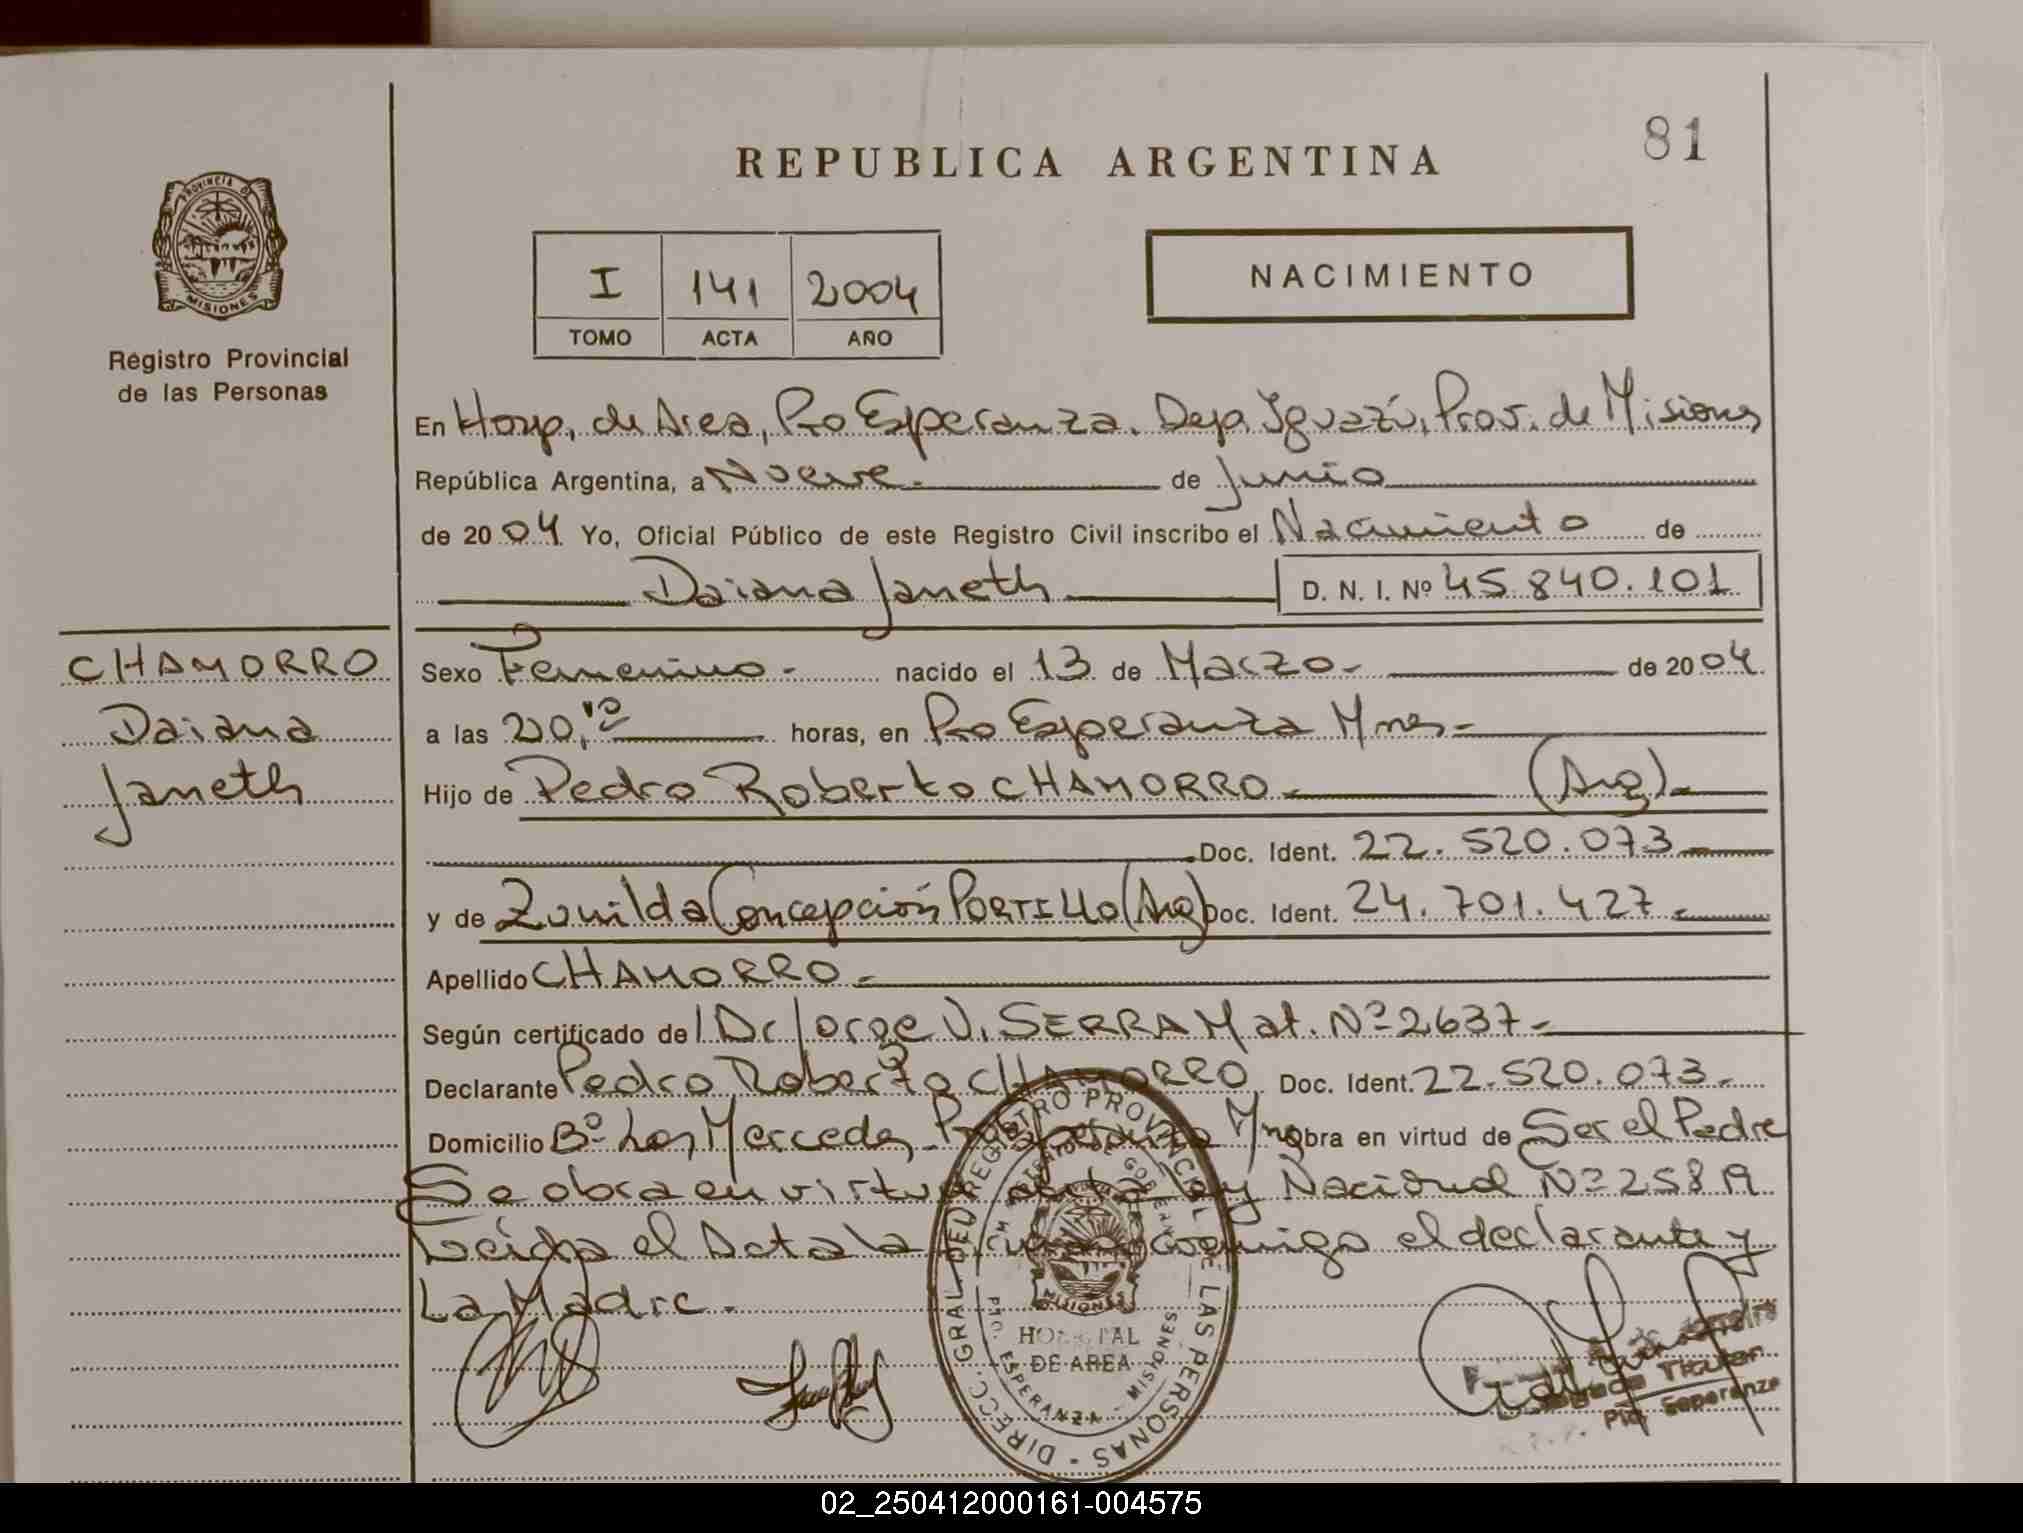 81
REPUBLICA ARGENTINA
PROVINCIA DE
MISIONES
Registro Provincial
de las Personas
I 141 2004
TOMO ACTA AÑO
NACIMIENTO
En Hosp. de Area, Pto Esperanza. Dep. Iguazú, Prov. de Misiones
República Argentina, a Nueve.- de Junio
de 2004 Yo, Oficial Público de este Registro Civil inscribo el Nacimiento de
Daiana Janeth D. N. I. Nº 45.840.101
CHAMORRO
Daiana
Janeth
Sexo Femenino.- nacido el 13 de Marzo.- de 2004
a las 20,10 horas, en Pto Esperanza Mnes.-
Hijo de Pedro Roberto CHAMORRO.- (Arg).-
Doc. Ident. 22.520.073.-
y de Zunilda Concepción PORTILLO (Arg) Doc. Ident. 24.701.427.-
Apellido CHAMORRO.-
Según certificado del Dr Jorge V. SERRA Mat. Nº 2637.-
Declarante Pedro Roberto CHAMORRO Doc. Ident. 22.520.073.-
Domicilio Bº Las Mercedes Pto Esperanza Mnes obra en virtud de Ser el Padre
Se obra en virtud de la Ley Nacional Nº 25819
Leída el Acta la firman conmigo el declarante y
La Madre.-
DIRECC. GRAL. DEL REGISTRO PROVINCIAL DE LAS PERSONAS
MINISTERIO DE GOBIERNO
MISIONES
HOSPITAL
DE AREA
PTO. ESPERANZA - MISIONES
Titular
Pto Esperanza
02_250412000161-004575